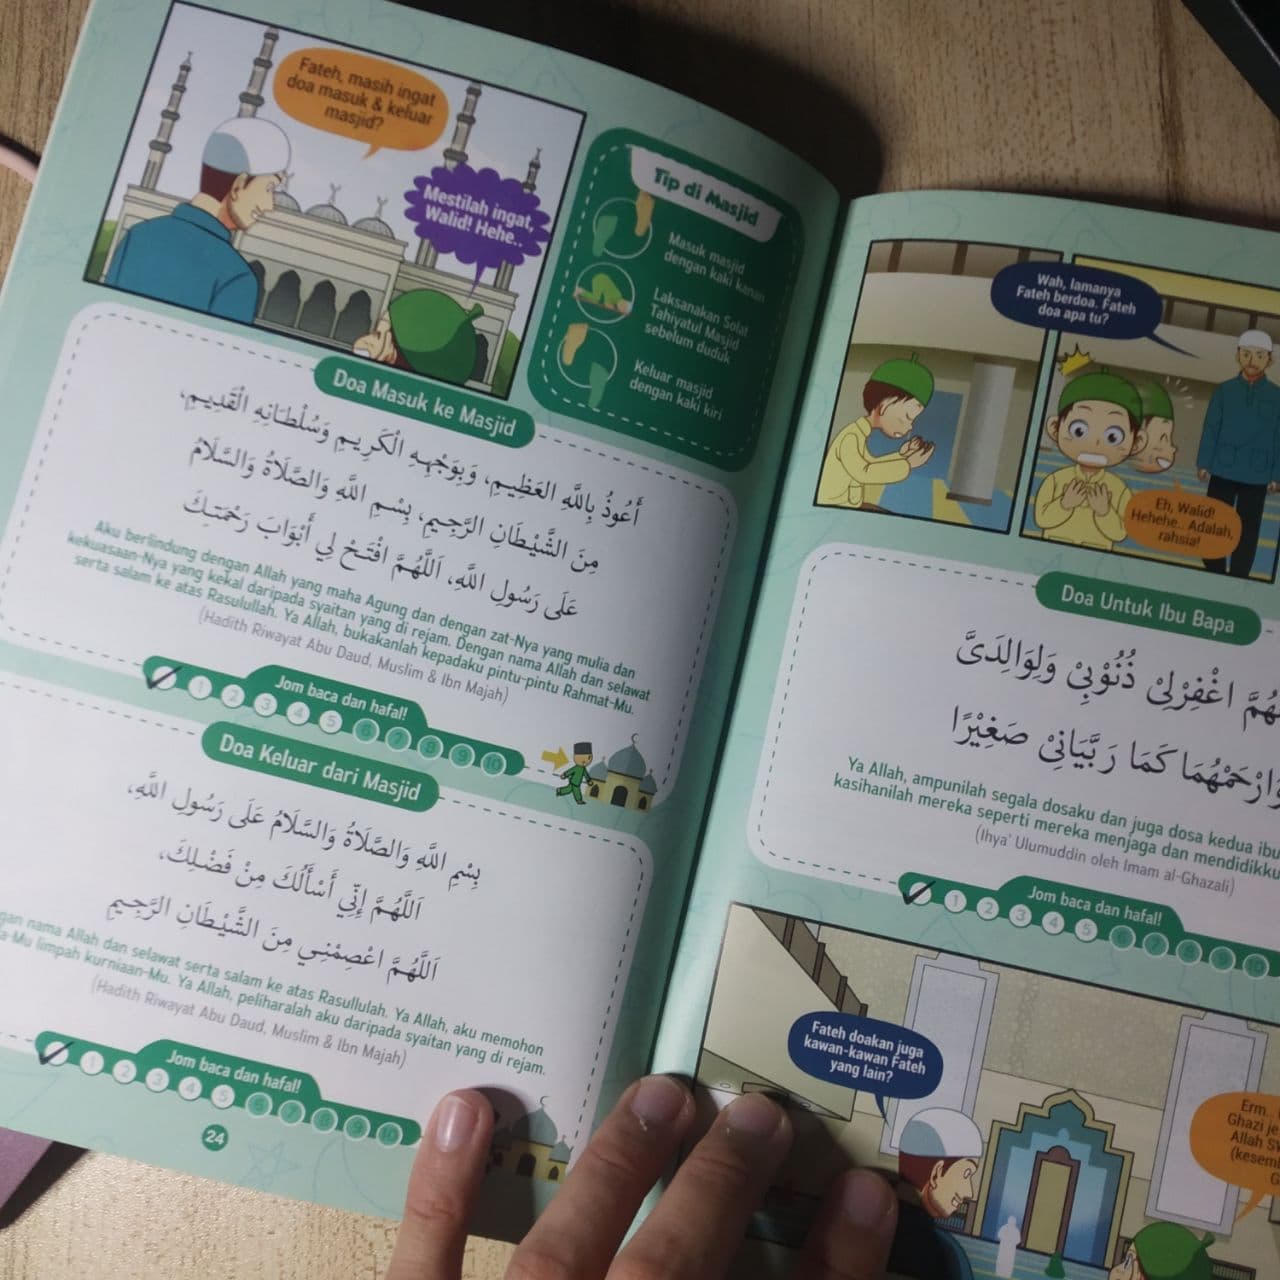 Fateh, masih ingat
doa masuk & keluar
masjid?
Mestilah ingat,
Walid! Hehe..
Tip di Masjid
Masuk masjid
dengan kaki kanan
Laksanakan Solat
Tahiyatul Masjid
sebelum duduk
Keluar masjid
dengan kaki kiri
Doa Masuk ke Masjid
أَعُوذُ بِاللَّهِ العَظِيمِ، وَبِوَجْهِهِ الْكَرِيمِ وَسُلْطَانِهِ الْقَدِيمِ،
مِنَ الشَّيْطَانِ الرَّجِيمِ، بِسْمِ اللَّهِ وَالصَّلَاةُ وَالسَّلَامُ
عَلَى رَسُولِ اللَّهِ، اَللَّهُمَّ افْتَحْ لِي أَبْوَابَ رَحْمَتِكَ
Aku berlindung dengan Allah yang maha Agung dan dengan zat-Nya yang mulia dan
kekuasaan-Nya yang kekal daripada syaitan yang di rejam. Dengan nama Allah dan selawat
serta salam ke atas Rasulullah. Ya Allah, bukakanlah kepadaku pintu-pintu Rahmat-Mu.
(Hadith Riwayat Abu Daud, Muslim & Ibn Majah)
Jom baca dan hafal!
1 2 3 4 5 6 7 8 9 10
Doa Keluar dari Masjid
بِسْمِ اللَّهِ وَالصَّلَاةُ وَالسَّلَامُ عَلَى رَسُولِ اللَّهِ،
اَللَّهُمَّ إِنِّي أَسْأَلُكَ مِنْ فَضْلِكَ،
اَللَّهُمَّ اعْصِمْنِي مِنَ الشَّيْطَانِ الرَّجِيمِ
nama Allah dan selawat serta salam ke atas Rasullulah. Ya Allah, aku memohon
limpah kurniaan-Mu. Ya Allah, peliharalah aku daripada syaitan yang di rejam.
(Hadith Riwayat Abu Daud, Muslim & Ibn Majah)
Jom baca dan hafal!
1 2 3 4 5 6 7 8 9 10
24
Wah, lamanya
Fateh berdoa. Fateh
doa apa tu?
Eh, Walid!
Hehehe.. Adalah,
rahsia!
Doa Untuk Ibu Bapa
اغْفِرْلِيْ ذُنُوْبِيْ وَلِوَالِدَيَّ
وَارْحَمْهُمَا كَمَا رَبَّيَانِيْ صَغِيْرًا
Ya Allah, ampunilah segala dosaku dan juga dosa kedua ibu
kasihanilah mereka seperti mereka menjaga dan mendidikku
(Ihya' Ulumuddin oleh Imam al-Ghazali)
Jom baca dan hafal!
1 2 3 4 5 6 7 8 9 10
Fateh doakan juga
kawan-kawan Fateh
yang lain?
Erm..
Ghazi je
Allah